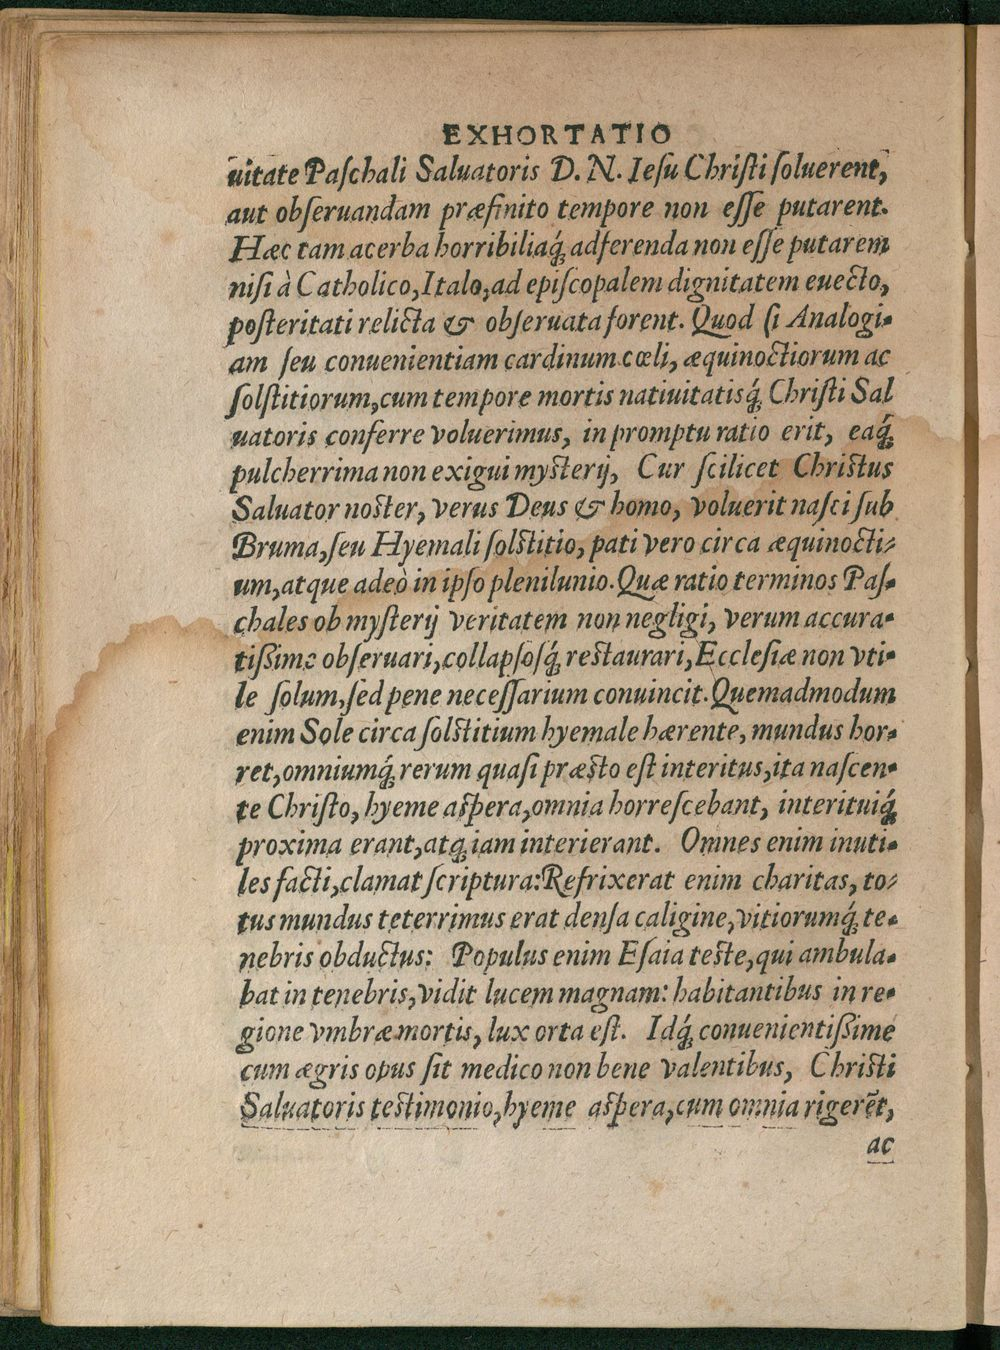 EXHORTATIO
uitate Paſchali Saluatoris D. N. Ieſu Chriſti ſoluerent,
aut obſeruandam præfinito tempore non eſſe putarent.
Hæc tam acerba horribiliaq́; adferenda non eſſe putarem
niſi à Catholico, Italo, ad epiſcopalem dignitatem euecto,
poſteritati relicta & obſeruata forent. Quod ſi Analogi-
am ſeu conuenientiam cardinum cœli, æquinoctiorum ac
ſolſtitiorum, cum tempore mortis natiuitatisq́; Chriſti Sal
uatoris conferre voluerimus, in promptu ratio erit, eaq́;
pulcherrima non exigui myſterij, Cur ſcilicet Chriſtus
Saluator noſter, verus Deus & homo, voluerit naſci ſub
Bruma, ſeu Hyemali ſolſtitio, pati vero circa æquinocti-
um, atque adeò in ipſo plenilunio. Quæ ratio terminos Paſ-
chales ob myſterij veritatem non negligi, verum accura-
tißime obſeruari, collapſosq́; reſtaurari, Eccleſiæ non vti-
le ſolum, ſed pene neceſſarium conuincit. Quemadmodum
enim Sole circa ſolſtitium hyemale hærente, mundus hor-
ret, omniumq́; rerum quaſi præſto eſt interitus, ita naſcen-
te Chriſto, hyeme aſpera, omnia horreſcebant, interituiq́;
proxima erant, atq; iam interierant. Omnes enim inuti-
les facti, clamat ſcriptura: Refrixerat enim charitas, to-
tus mundus teterrimus erat denſa caligine, vitiorumq́; te-
nebris obductus: Populus enim Eſaia teſte, qui ambula-
bat in tenebris, vidit lucem magnam: habitantibus in re-
gione vmbræ mortis, lux orta eſt. Idq́; conuenientißime
cum ægris opus ſit medico non bene valentibus, Chriſti
Saluatoris teſtimonio, hyeme aſpera, cum omnia rigerẽt,
ac